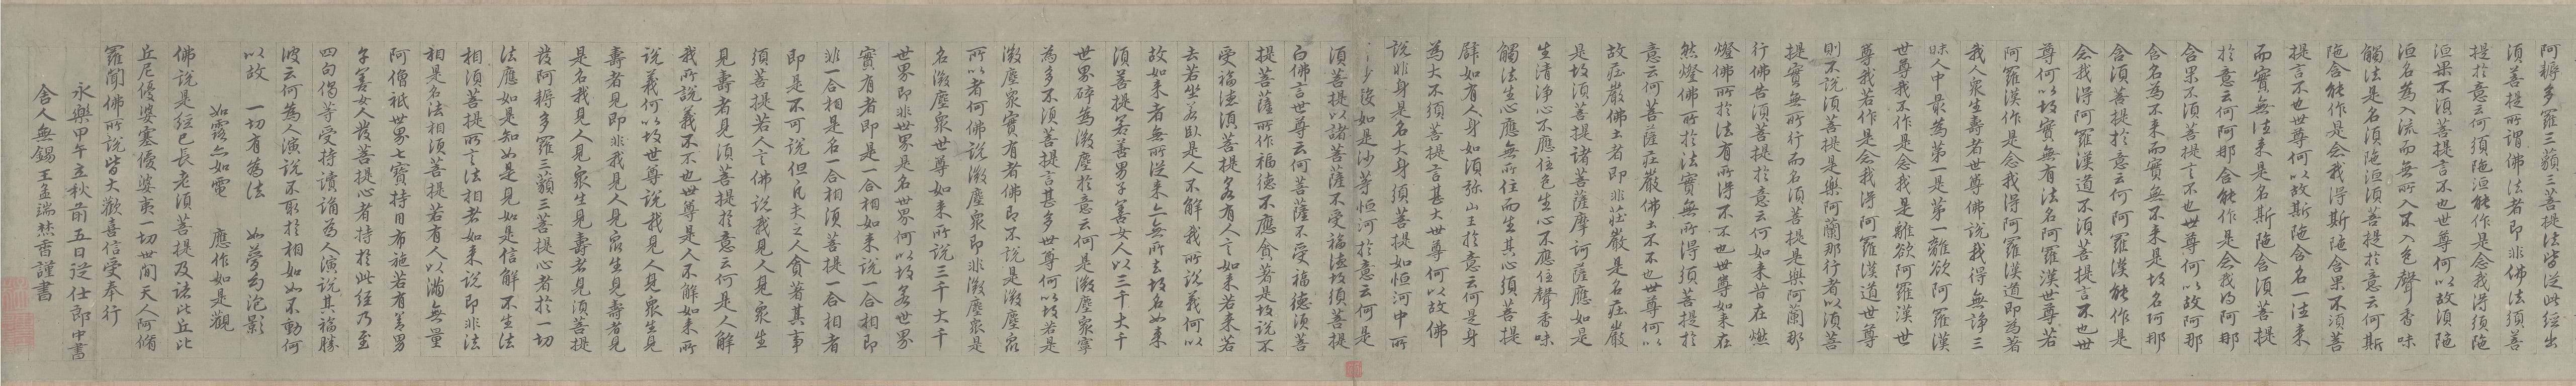 阿耨多羅三藐三菩提法皆從此經出
須菩提所謂佛法者即非佛法須菩
提於意云何須陁洹能作是念我得須陁
洹果不須菩提言不也世尊何以故須陁
洹名為入流而無所入不入色聲香味
觸法是名須陁洹須菩提於意云何斯
陁含能作是念我得斯陁含果不須菩
提言不也世尊何以故斯陁含名一往来
而實無往来是名斯陁含須菩提
於意云何阿那含能作是念我得阿那
含果不須菩提言不也世尊何以故阿那
含名為不来而實無不来是故名阿那
含須菩提於意云何阿羅漢能作是
念我得阿羅漢道不須菩提言不也世
尊何以故實無有法名阿羅漢世尊若
阿羅漢作是念我得阿羅漢道即為著
我人衆生壽者世尊佛說我得無諍三
昧人中最為第一是第一離欲阿羅漢
世尊我不作是念我是離欲阿羅漢世
尊我若作是念我得阿羅漢道世尊
則不說須菩提是樂阿蘭那行者以須菩
提實無所行而名須菩提是樂阿蘭那
行佛告須菩提於意云何如来昔在燃
燈佛所於法有所得不不也世尊如来在
然燈佛所於法實無所得須菩提於
意云何菩薩莊嚴佛土不不也世尊何以
故莊嚴佛土者即非莊嚴是名莊嚴
是故須菩提諸菩薩摩訶薩應如是
生清淨心不應住色生心不應住聲香味
觸法生心應無所住而生其心須菩提
譬如有人身如須弥山王於意云何是身
為大不須菩提言甚大世尊何以故佛
說非身是名大身須菩提如恒河中所
如是沙等恒河於意云何是
須菩提以諸菩薩不受福德故須菩提
白佛言世尊云何菩薩不受福德須菩
提菩薩所作福德不應貪著是故說不
受福德須菩提若有人言如来若来若
去若坐若臥是人不解我所說義何以
故如来者無所従来亦無所去故名如来
須菩提若善男子善女人以三千大千
世界碎為微塵於意云何是微塵衆寧
為多不須菩提言甚多世尊何以故若是
微塵衆實有者佛即不說是微塵衆
所以者何佛說微塵衆即非微塵衆是
名微塵衆世尊如来所說三千大千
世界即非世界是名世界何以故若世界
實有者即是一合相如来說一合相即
非一合相是名一合相須菩提一合相者
即是不可說但凡夫之人貪著其事
須菩提若人言佛說我見人見衆生
見壽者見須菩提於意云何是人解
我所說義不不也世尊是人不解如来所
說義何以故世尊說我見人見衆生見
壽者見即非我見人見衆生見壽者見
是名我見人見衆生見壽者見須菩提
發阿耨多羅三藐三菩提心者於一切
法應如是知如是見如是信解不生法
相須菩提所言法相者如来說即非法
相是名法相須菩提若有人以滿無量
阿僧祇世界七寶持用布施若有善男
子善女人發菩提心者持於此經乃至
四句偈等受持讀誦為人演說其福勝
彼云何為人演說不取於相如如不動何
以故　一切有為法　如夢幻泡影
如露亦如電　應作如是觀
佛說是經已長老須菩提及諸比丘比
丘尼優婆塞優婆夷一切世間天人阿脩
羅聞佛所說皆大歡喜信受奉行
永樂甲午立秋前五日從仕郎中書
舍人無錫王孟端焚香謹書